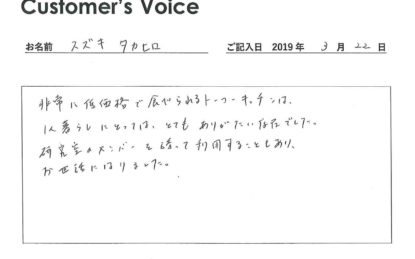 Customer's Voice
お名前 スズキ タカヒロ ご記入日 2019年 3月 22日
非常に低価格で食べられるトーフーキッチンは、
1人暮らしにとっては、とても ありがたい存在でした。
研究室のメンバーを誘って利用することもあり、
お世話になりました。